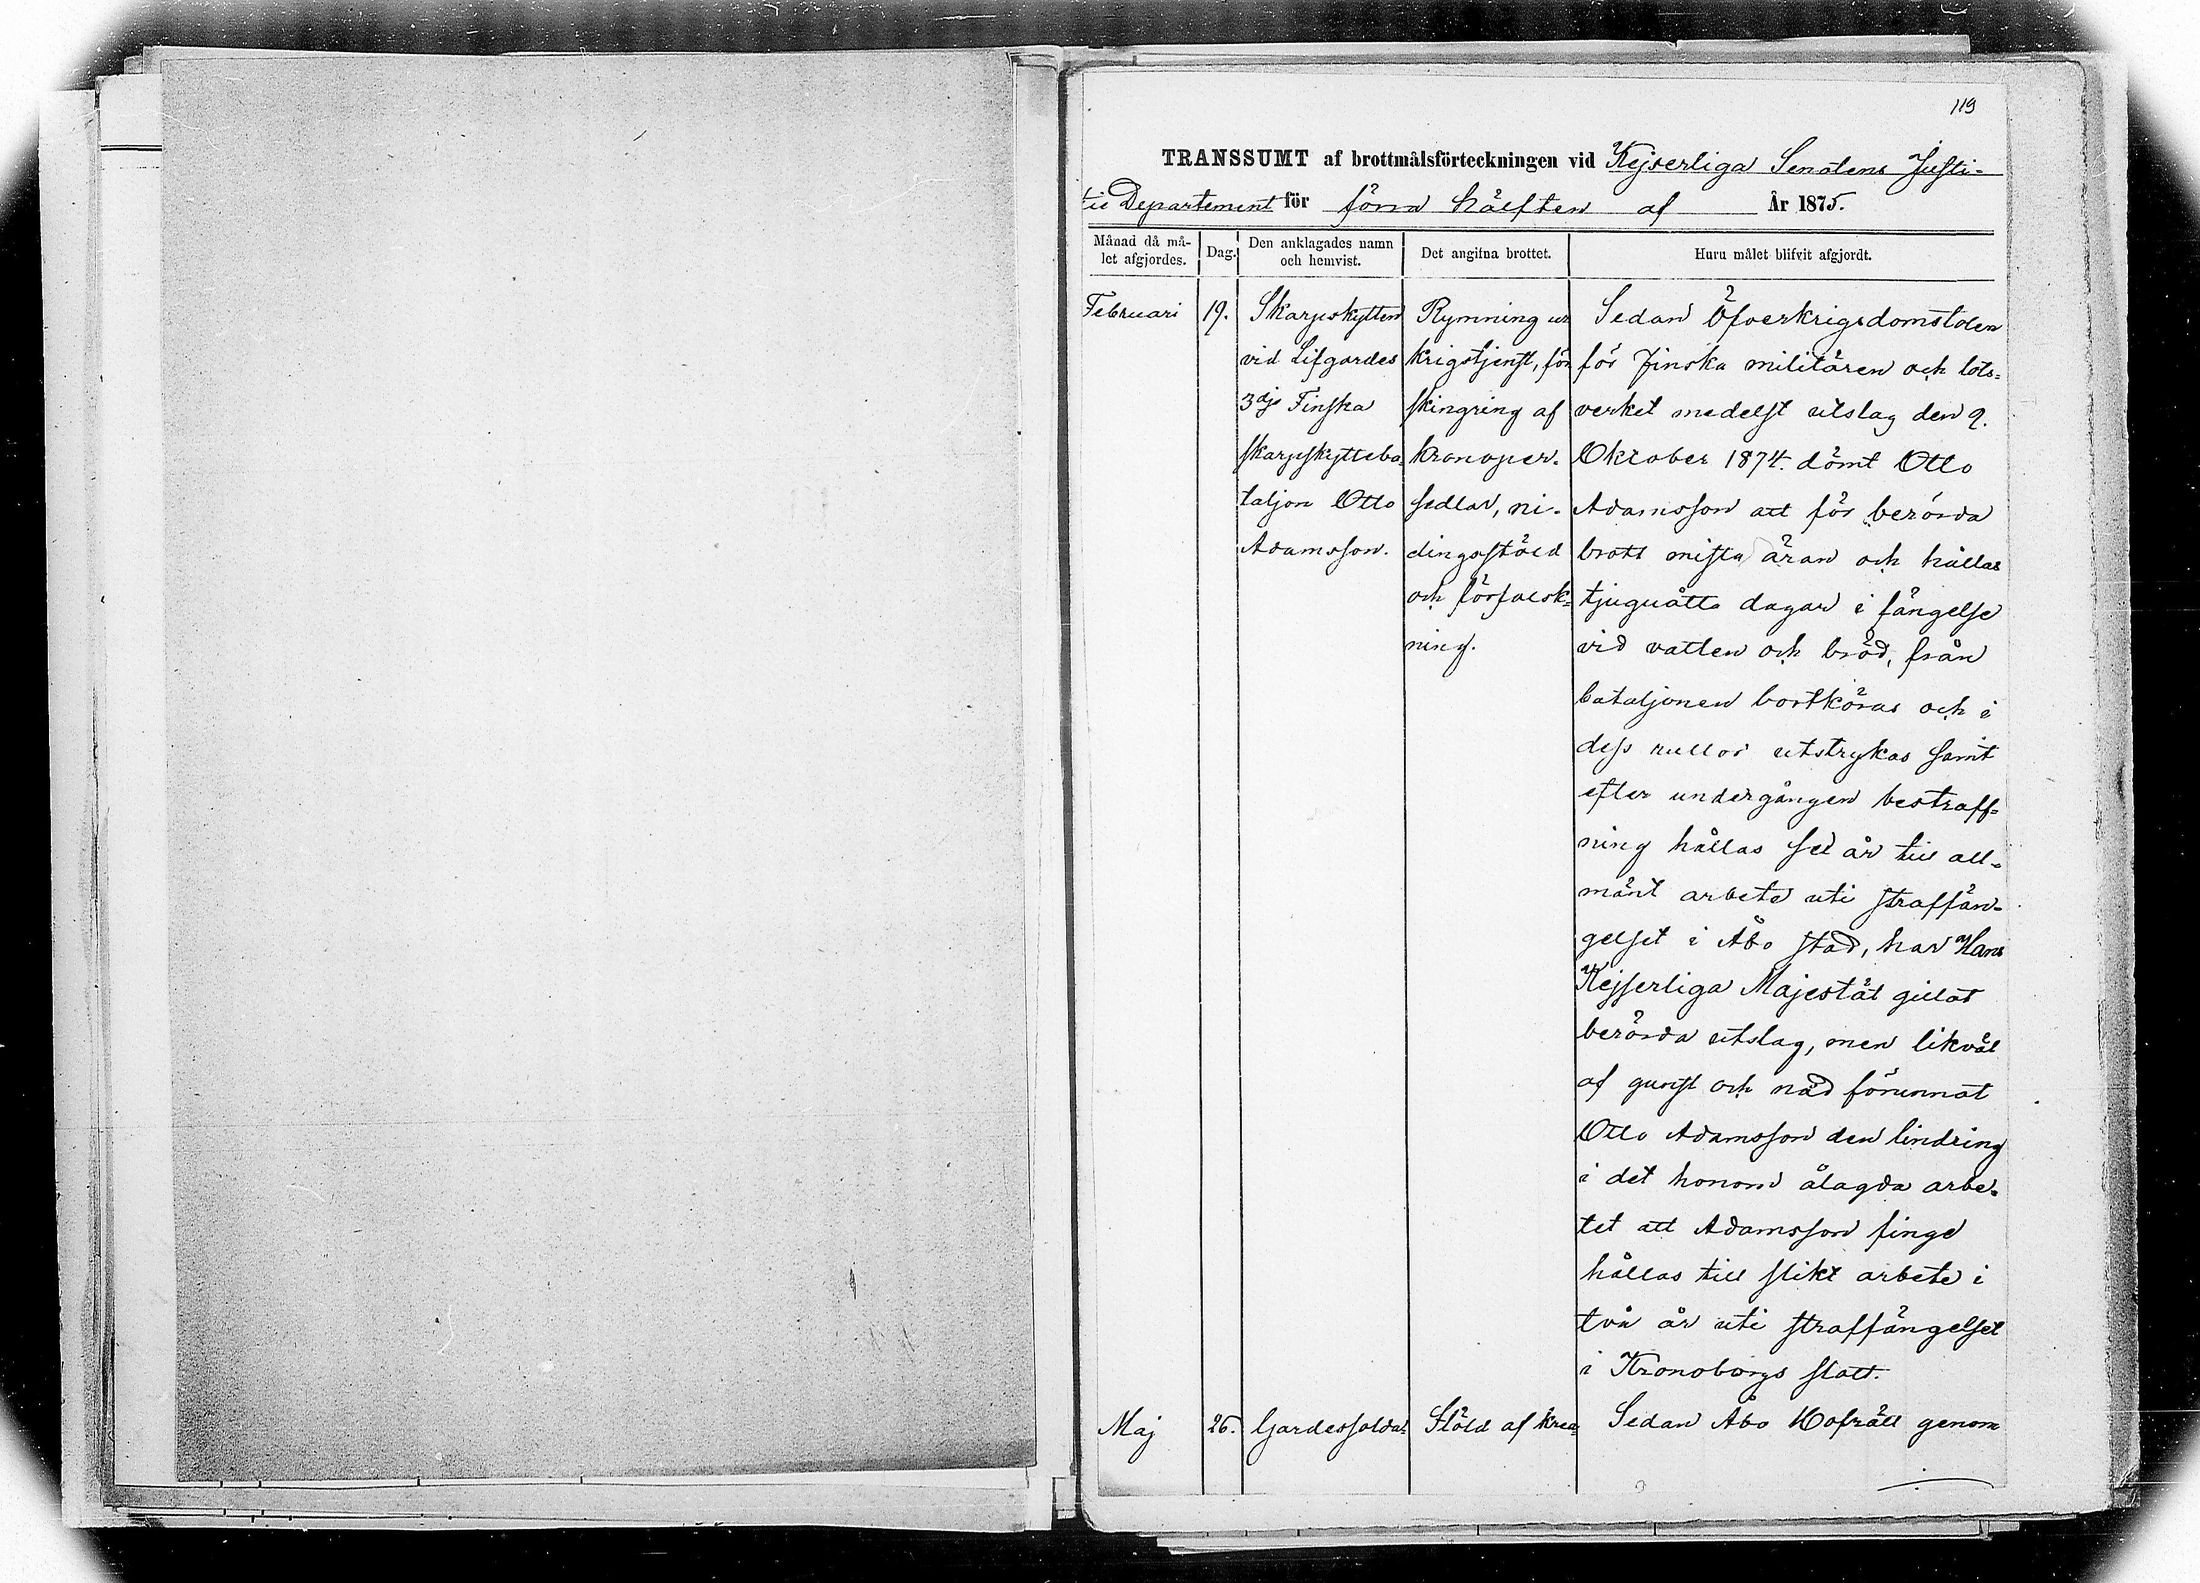 119
TRANSSUMT af brottmålsförteckningen vid Kejserliga Senatens Justi-
tie Departement för förra hälften af År 1875.
Månad då må-
let afgjordes.
Dag.
Den anklagades namn
och hemvist.
Det angifna brottet.
Huru målet blifvit afgjordt.
Februari
19.
Skarpskytten
vid Lifgardes
3dje Finska
skarpskytteba-
taljon Otto
Adamsson.
Rymning ur
krigstjenst, för
skingring af
kronoper-
sedlar, ni-
dingsstöld
och förfalsk-
ning.
Sedan Öfverkrigsdomstolen
för finska militären och lots-
verket medelst utslag den 9.
Oktober 1874. dömt Otto
Adamsson att för berörda
brott mista äran och hållas
tjuguåtta dagar i fängelse
vid vatten och bröd, från
bataljonen bortköras och i
dess rullor utstrykas samt
efter undergången bestraff-
ning hållas sex år till all-
mänt arbete uti straffän-
gelset i Åbo stad, har Hans
Kejserliga Majestät gillat
berörda utslag, men likväl
af gunst och nåd förunnat
Otto Adamsson den lindring
i det honom ålagda arbe-
tet att Adamsson finge
hållas till slikt arbete i
två år uti straffängelset
i Kronoborgs slott.
Maj
26.
Gardessolda-
Stöld af krea-
Sedan Åbo Hofrätt genom